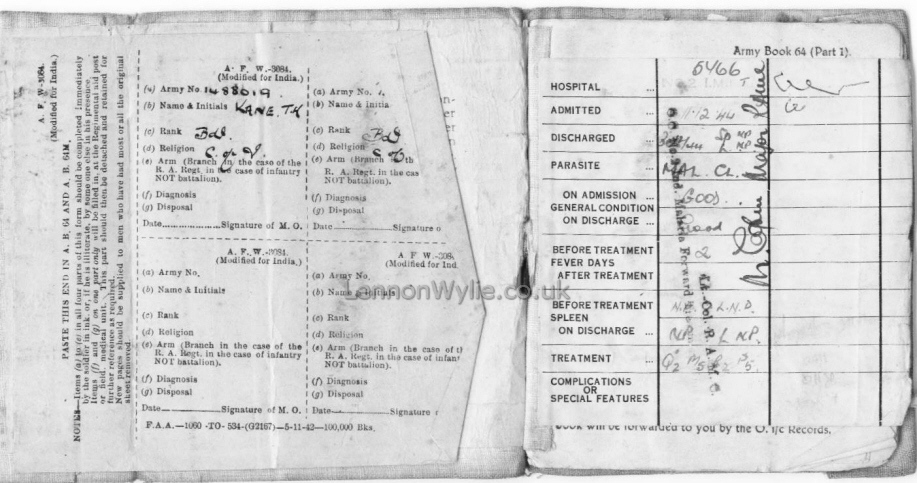 A. F. W.-3084.
(Modified for India.)
PASTE THIS END IN A. B. 64 AND A. B. 64M.
NOTES—Items (a) to (e) in all four parts of this form should be completed immediately
by the soldier in ink, or, if he is illiterate, by some one else in his presence.
Items (f) and (g) on one part only will be filled in, at the Regimental aid post
or field medical unit. This part should then be detached and retained for
further reference as required.
New pages should be supplied to men who have had most or all the original
sheet removed.
A. F. W.-3084.
(Modified for India.)
(a) Army No. 1488019
(b) Name & Initials KANE. TH
(c) Rank Bdr
(d) Religion C. of I.
(e) Arm (Branch in the case of the
R. A. Regt. in the case of infantry
NOT battalion).
(f) Diagnosis
(g) Disposal
Date....................Signature of M. O.
(a) Army No.
(b) Name & Initia
(c) Rank Bdr
(d) Religion
(e) Arm (Branch th
R. A. Regt. in the cas
NOT battalion).
(f) Diagnosis
(g) Disposal
Date....................Signature o
A. F. W.-3084.
(Modified for India.)
(a) Army No.
(b) Name & Initials
(c) Rank
(d) Religion
(e) Arm (Branch in the case of the
R. A. Regt. in the case of infantry
NOT battalion).
(f) Diagnosis
(g) Disposal
Date....................Signature of M. O.
A. F. W.-308
(Modified for Ind
(a) Army No.
(b) Name & Initials
(c) Rank
(d) Religion
(e) Arm (Branch in the case of th
R. A. Regt. in the case of infant
NOT battalion).
(f) Diagnosis
(g) Disposal
Date....................Signature o
F.A.A.—1060 -TO- 534-(G2167)—5-11-42—100,000 Bks.
LennonWylie.co.uk
Army Book 64 (Part 1).
5466
HOSPITAL ...
ADMITTED ... 1.12.44
DISCHARGED ...
PARASITE ... MAL. CL.
ON ADMISSION ... GOOD.
GENERAL CONDITION
ON DISCHARGE ... Good
BEFORE TREATMENT 2
FEVER DAYS
AFTER TREATMENT
BEFORE TREATMENT N.P. L.N.P.
SPLEEN
ON DISCHARGE ... N.P. L N.P.
TREATMENT ...
COMPLICATIONS
OR
SPECIAL FEATURES
Malaria Forward
Lt.-Col. R. A. M. C.
Major
book will be forwarded to you by the O. i/c Records,